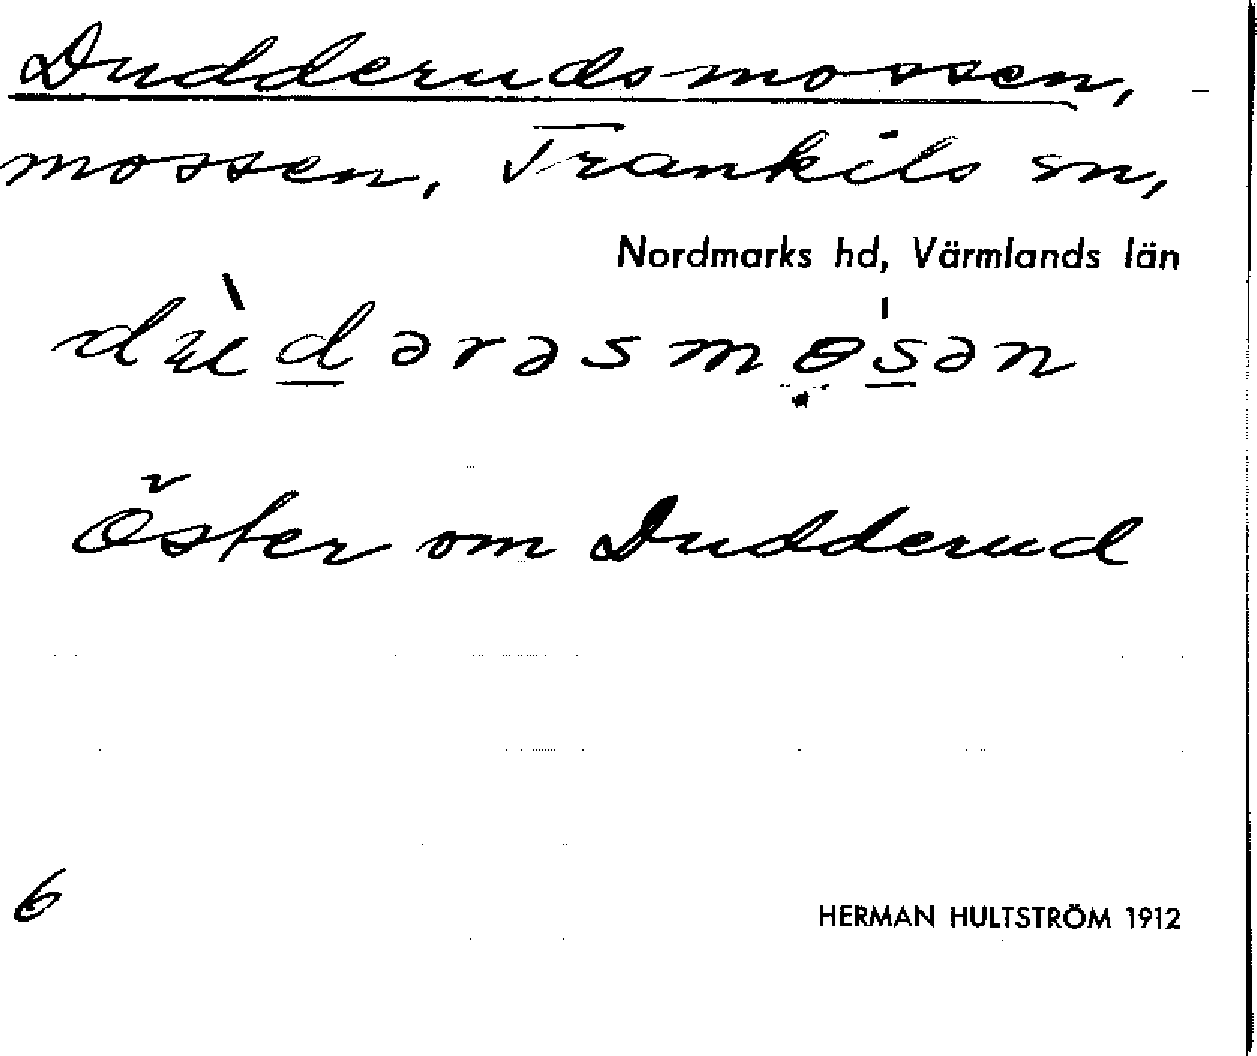 Dudderudsmossen,
mossen, Trankils sn,
Nordmarks hd, Värmlands län
Öster om Dudderud
6
HERMAN HULTSTRÖM 1912